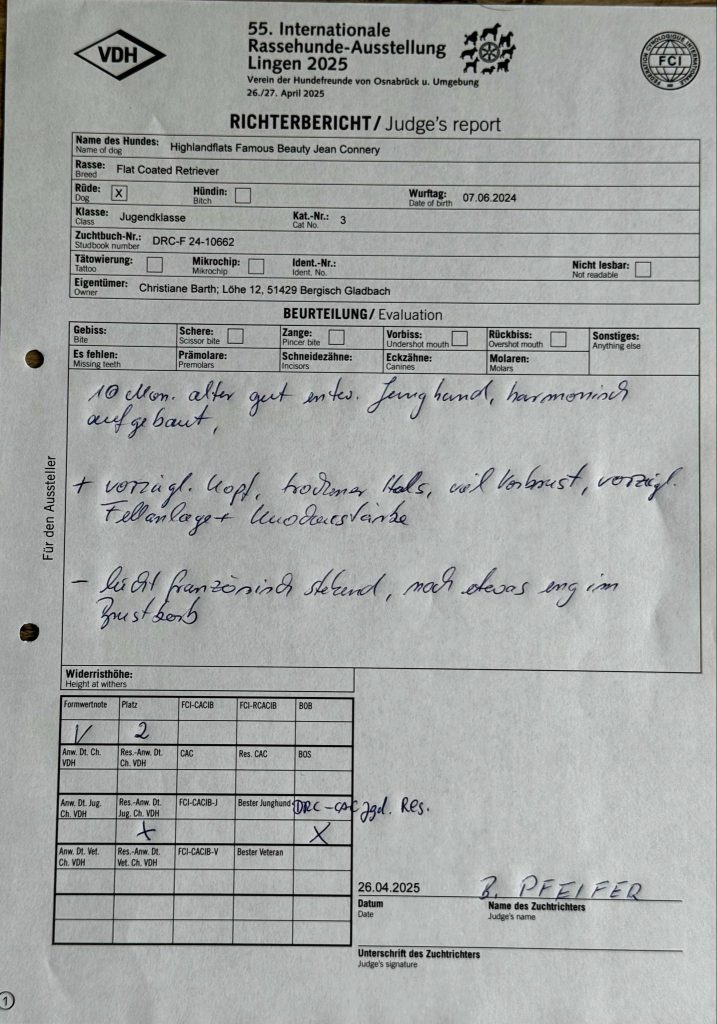 VDH
55. Internationale
Rassehunde-Ausstellung
Lingen 2025
Verein der Hundefreunde von Osnabrück u. Umgebung
26./27. April 2025
FEDERATION CYNOLOGIQUE INTERNATIONALE
FCI
RICHTERBERICHT/ Judge's report
Name des Hundes: Highlandflats Famous Beauty Jean Connery
Name of dog
Rasse: Flat Coated Retriever
Breed
Rüde: X Hündin: Wurftag: 07.06.2024
Dog Bitch Date of birth
Klasse: Jugendklasse Kat.-Nr.: 3
Class Cat No.
Zuchtbuch-Nr.: DRC-F 24-10662
Studbook number
Tätowierung: Mikrochip: Ident.-Nr.: Nicht lesbar:
Tattoo Mikrochip Ident. No. Not readable
Eigentümer: Christiane Barth; Löhe 12, 51429 Bergisch Gladbach
Owner
BEURTEILUNG/ Evaluation
Gebiss: Schere: Zange: Vorbiss: Rückbiss: Sonstiges:
Bite Scissor bite Pincer bite Undershot mouth Overshot mouth Anything else
Es fehlen: Prämolare: Schneidezähne: Eckzähne: Molaren:
Missing teeth Premolars Incisors Canines Molars
10 Mon. alter gut entw. Junghund, harmonisch
aufgebaut,
+ vorzügl. Kopf, trockener Hals, viel Vorbrust, vorzügl.
Fellanlage + Knochenstärke
- leicht französisch stehend, noch etwas eng im
Brustkorb
Für den Aussteller
Widerristhöhe:
Height at withers
Formwertnote Platz FCI-CACIB FCI-RCACIB BOB
V 2
Anw. Dt. Ch. VDH Res.-Anw. Dt. Ch. VDH CAC Res. CAC BOS
Anw. Dt. Jug. Ch. VDH Res.-Anw. Dt. Jug. Ch. VDH FCI-CACIB-J Bester Junghund DRC-CAC Jgd. Res.
+ X
Anw. Dt. Vet. Ch. VDH Res.-Anw. Dt. Vet. Ch. VDH FCI-CACIB-V Bester Veteran
26.04.2025 B. PFEIFER
Datum Name des Zuchtrichters
Date Judge's name
Unterschrift des Zuchtrichters
Judge's signature
1